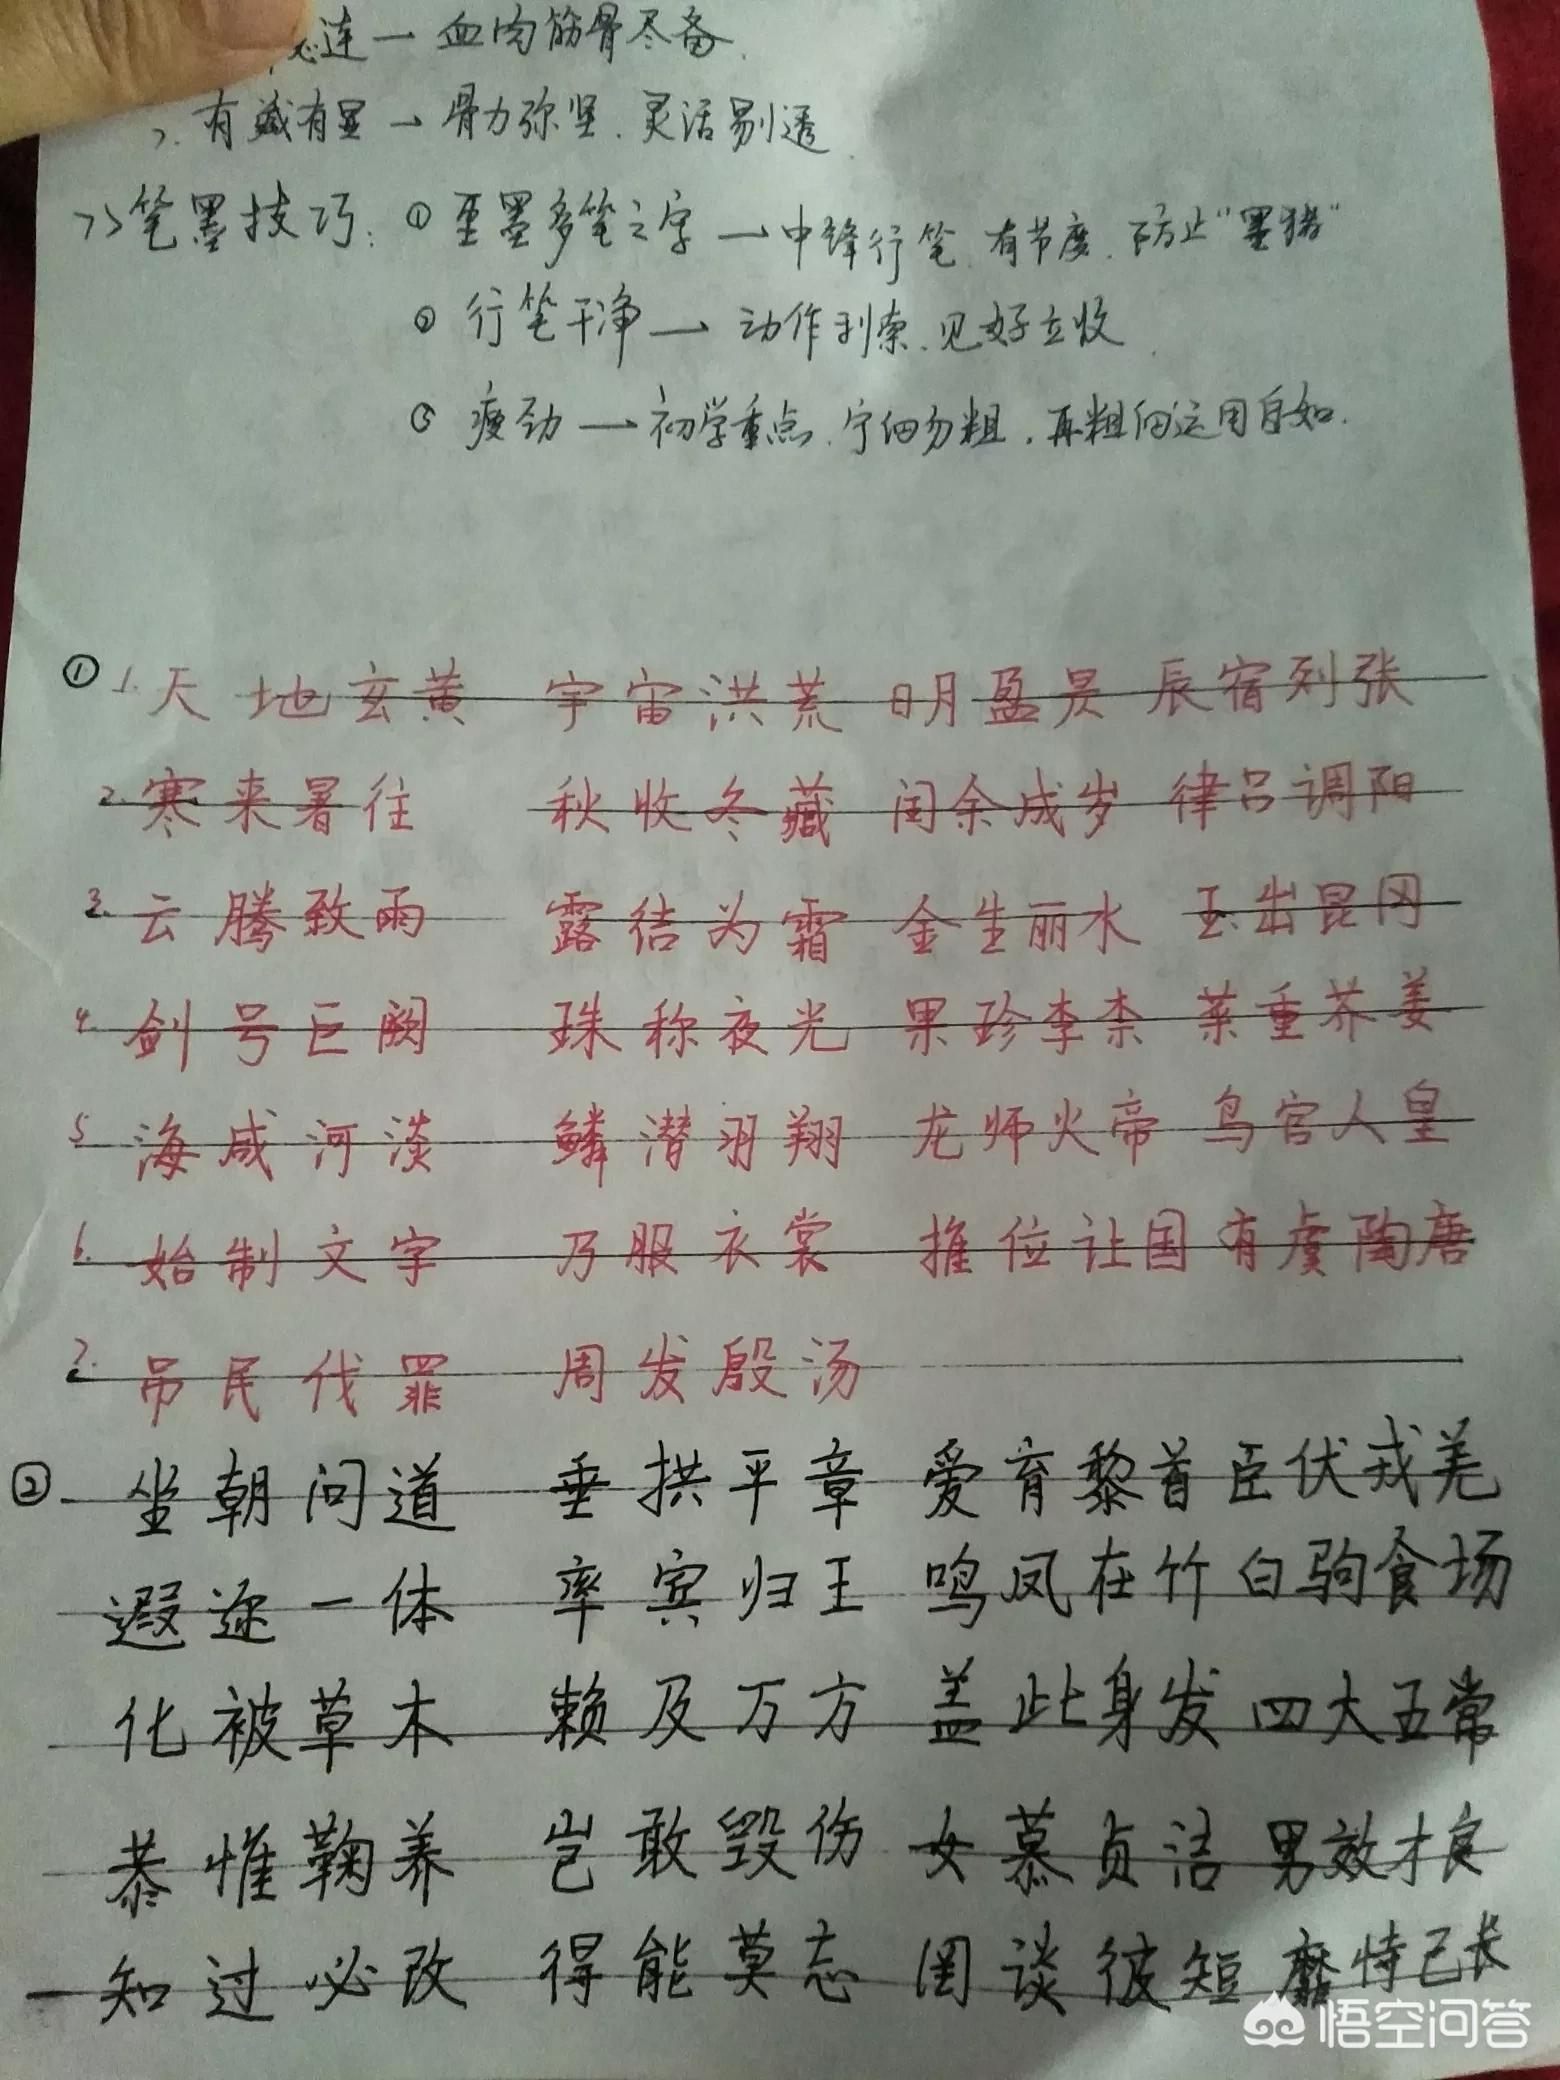 必连一血肉筋骨尽备.
2. 有藏有显一骨力弥坚.灵活剔透.
7>笔墨技巧:①重墨多笔之字一中锋行笔.有节度.防止"墨猪"
② 行笔干净一动作利索.见好立收.
③ 瘦劲一初学重点.宁细勿粗.再粗细运用自如.
① 1. 天地玄黄 宇宙洪荒 明盈昃 辰宿列张
2. 寒来暑往 秋收冬藏 闰余成岁 律吕调阳
3. 云腾致雨 露结为霜 金生丽水 玉出昆冈
4. 剑号巨阙 珠称夜光 果珍李柰 菜重芥姜
5. 海咸河淡 鳞潜羽翔 龙师火帝 鸟官人皇
6. 始制文字 乃服衣裳 推位让国 有虞陶唐
7. 吊民伐罪 周发殷汤
② 坐朝问道 垂拱平章 爱育黎首 臣伏戎羌
遐迩一体 率宾归王 鸣凤在竹 白驹食场
化被草木 赖及万方 盖此身发 四大五常
恭惟鞠养 岂敢毁伤 女慕贞洁 男效才良
知过必改 得能莫忘 罔谈彼短 靡恃己长
悟空问答